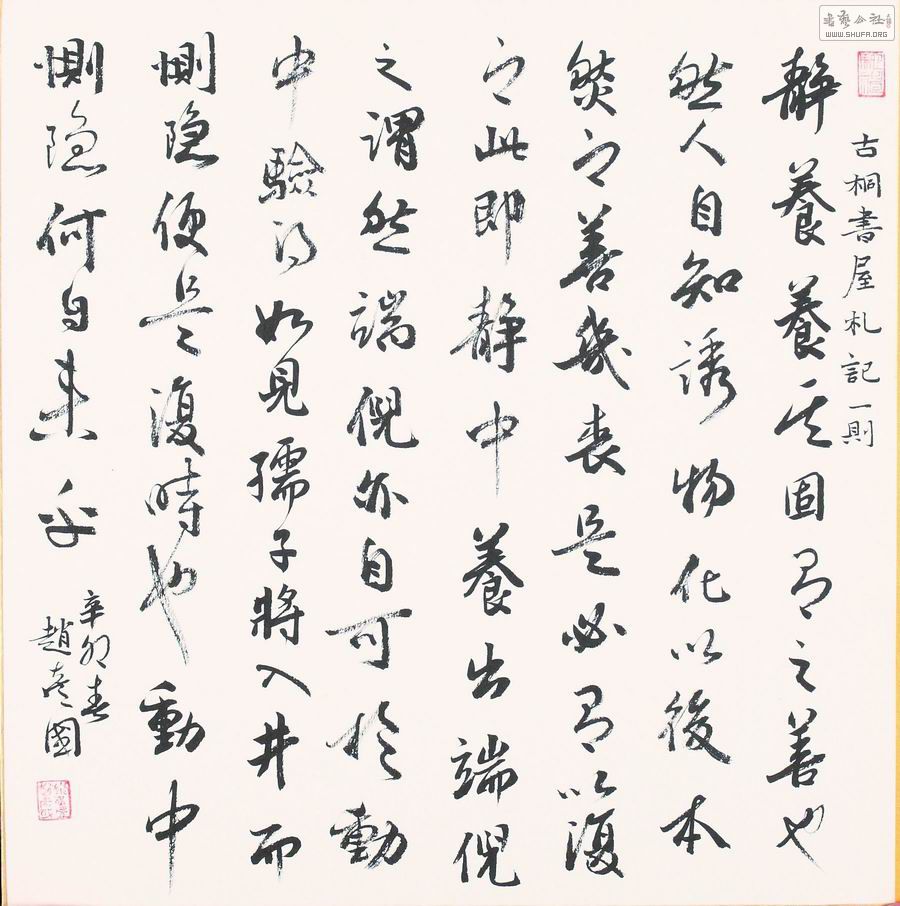 書藝公社
WWW.SHUFA.ORG
古桐書屋札記一則
靜養養其固有之善也
然人自知誘物化以後本
然之善幾喪是必有以復
之此即靜中養出端倪
之謂然端倪亦自可於動
中驗得如見孺子將入井而
惻隱便是復時也動中
惻隱何自来乎
辛卯春
趙彥國